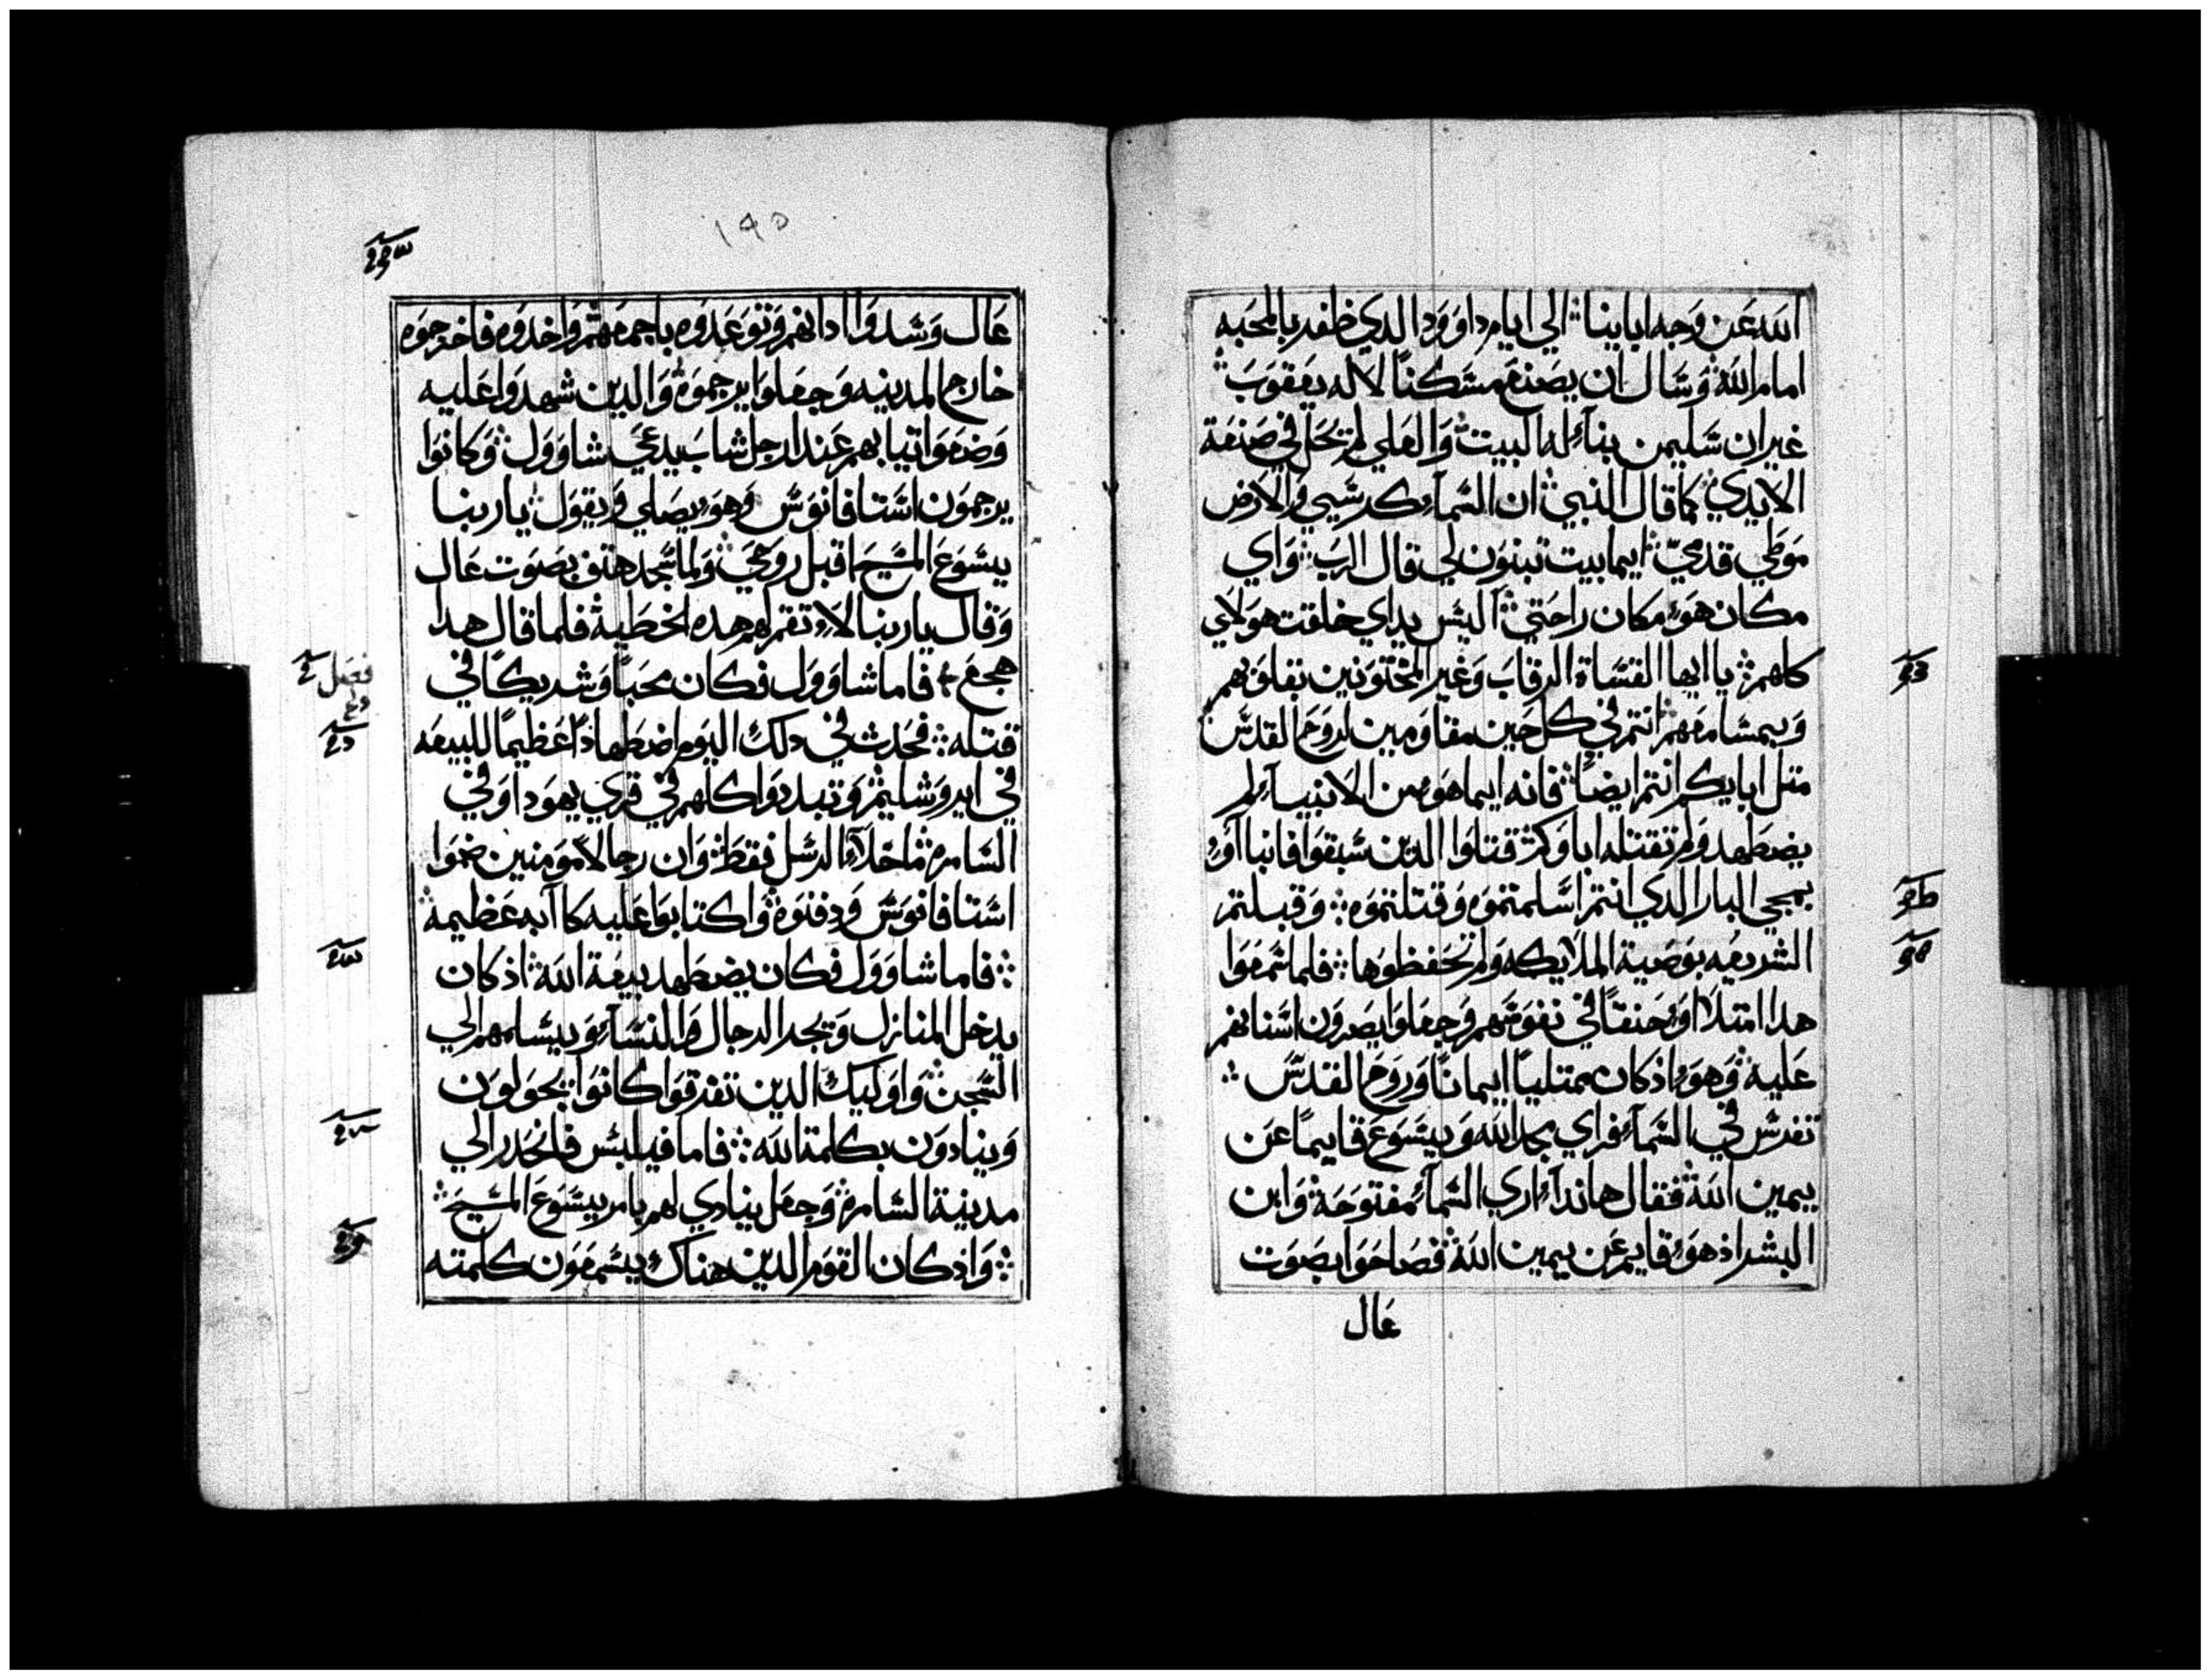 الله عَن وَجه ابايناً الي ايام داوَود الدي ظفر بالمحَبه
امام الله وَسَال ان يصَنع مسَكناً لاله يعَقوَبَ
غير ان سَليمن بناءَ له البيت وَالعَلي لم يحَل في صَنعَة
الايدي كما قال النبي ان السَماءَ كرسَيي وَالارَض
موَطي قدمَيّ ايما بيت تبنوَن لي قال الربَ وَاي
مكان هوَء مكان راحَتي اليسَ يداي خلقت هوَلاي
كلهم يا ايها القسَاة الرقابَ وَغير المختوَنين بقلوَبهم
وَبمسَامعَهم انتم في كل حَين مقاوَمين لروَح القدسَ
متل ابايكم انتم ايضاً فانه ايما هوَء من الانبياءَ لم
يضطهد وَلم تقتله اباوَكم قتلوَا الدين سَبقوَا فانباآوَء
بمجي البار الدي انتم اسَلمتموَه وَقتلتموَه وَقبلتم
الشريعَه بوَصَية الملايكه وَلم تحَفظوَها فلما سَمعَوَا
هدا امتلااوَء حَنقاً في نفوَسَهم وَجعَلوَا يصَروَن اسَنانهم
عَليه وَهوَء اذ كان ممتلياً ايماناً وَروَح القدسَ
تفرسَ في السَماءَ فراي مجد الله وَيسَوَع قايماً عَن
يمين الله فقال هانداءَ اري السَماءَ مفتوَحَة وَابن
البشر اذ هوَء قايم عَن يمين الله فصَاحَوَا بصَوَت
عَال
١٩٥
عَال وَسَدوَا ادانهم وَتوَعَدوَه باجمعَهم وَاخدوَه فاخرجوَه
خارج المدينه وَجعَلوَا يرجموَه وَالدين شهدوَا عَليه
وَضعَوَا تيابهم عَند ارجل شابَ يدعَي شاوَوَل وَكانوَا
يرجموَن اسَتافانوَسَ وَهوَء يصَلي وَيقوَل يا ربنا
يسَوَعَ المسَيحَ اقبل روَحَي وَلما سَجد هتف بصَوَت عَال
وَقال يا ربنا لاء تقم لهم هده الخطية فلما قال هدا
هجعَ فاما شاوَوَل فكان محَباً وَشريكاً في
قتله فحَدث في دلك اليوَم اضطهاداً عَظيماً للبيعَه
في ايروَشليم وَتبددوَا كلهم في قري يهوَدا وَفي
السَامره ما خلاءَ الرسَل فقط وَان رجالاً موَمنين ضموَا
اسَتافانوَسَ وَدفنوَه وَاكتابوَا عَليه كاآبه عَظيمه
فاما شاوَوَل فكان يضطهد بيعَة الله اذ كان
يدخل المنازل وَيجد الرجال وَالنسَاءَ وَيسَلمهم الي
السَجن وَاوَليك الدين تفرقوَا كانوَا يجوَلوَن
وَينادوَن بكلمة الله فاما فيلبسَ فانحَدر الي
مدينة السَامره وَجعَل ينادي لهم بامر يسَوَعَ المسَيحَ
وَاذ كان القوَم الدين هناك يسَمعَوَن كلمته
فصَل